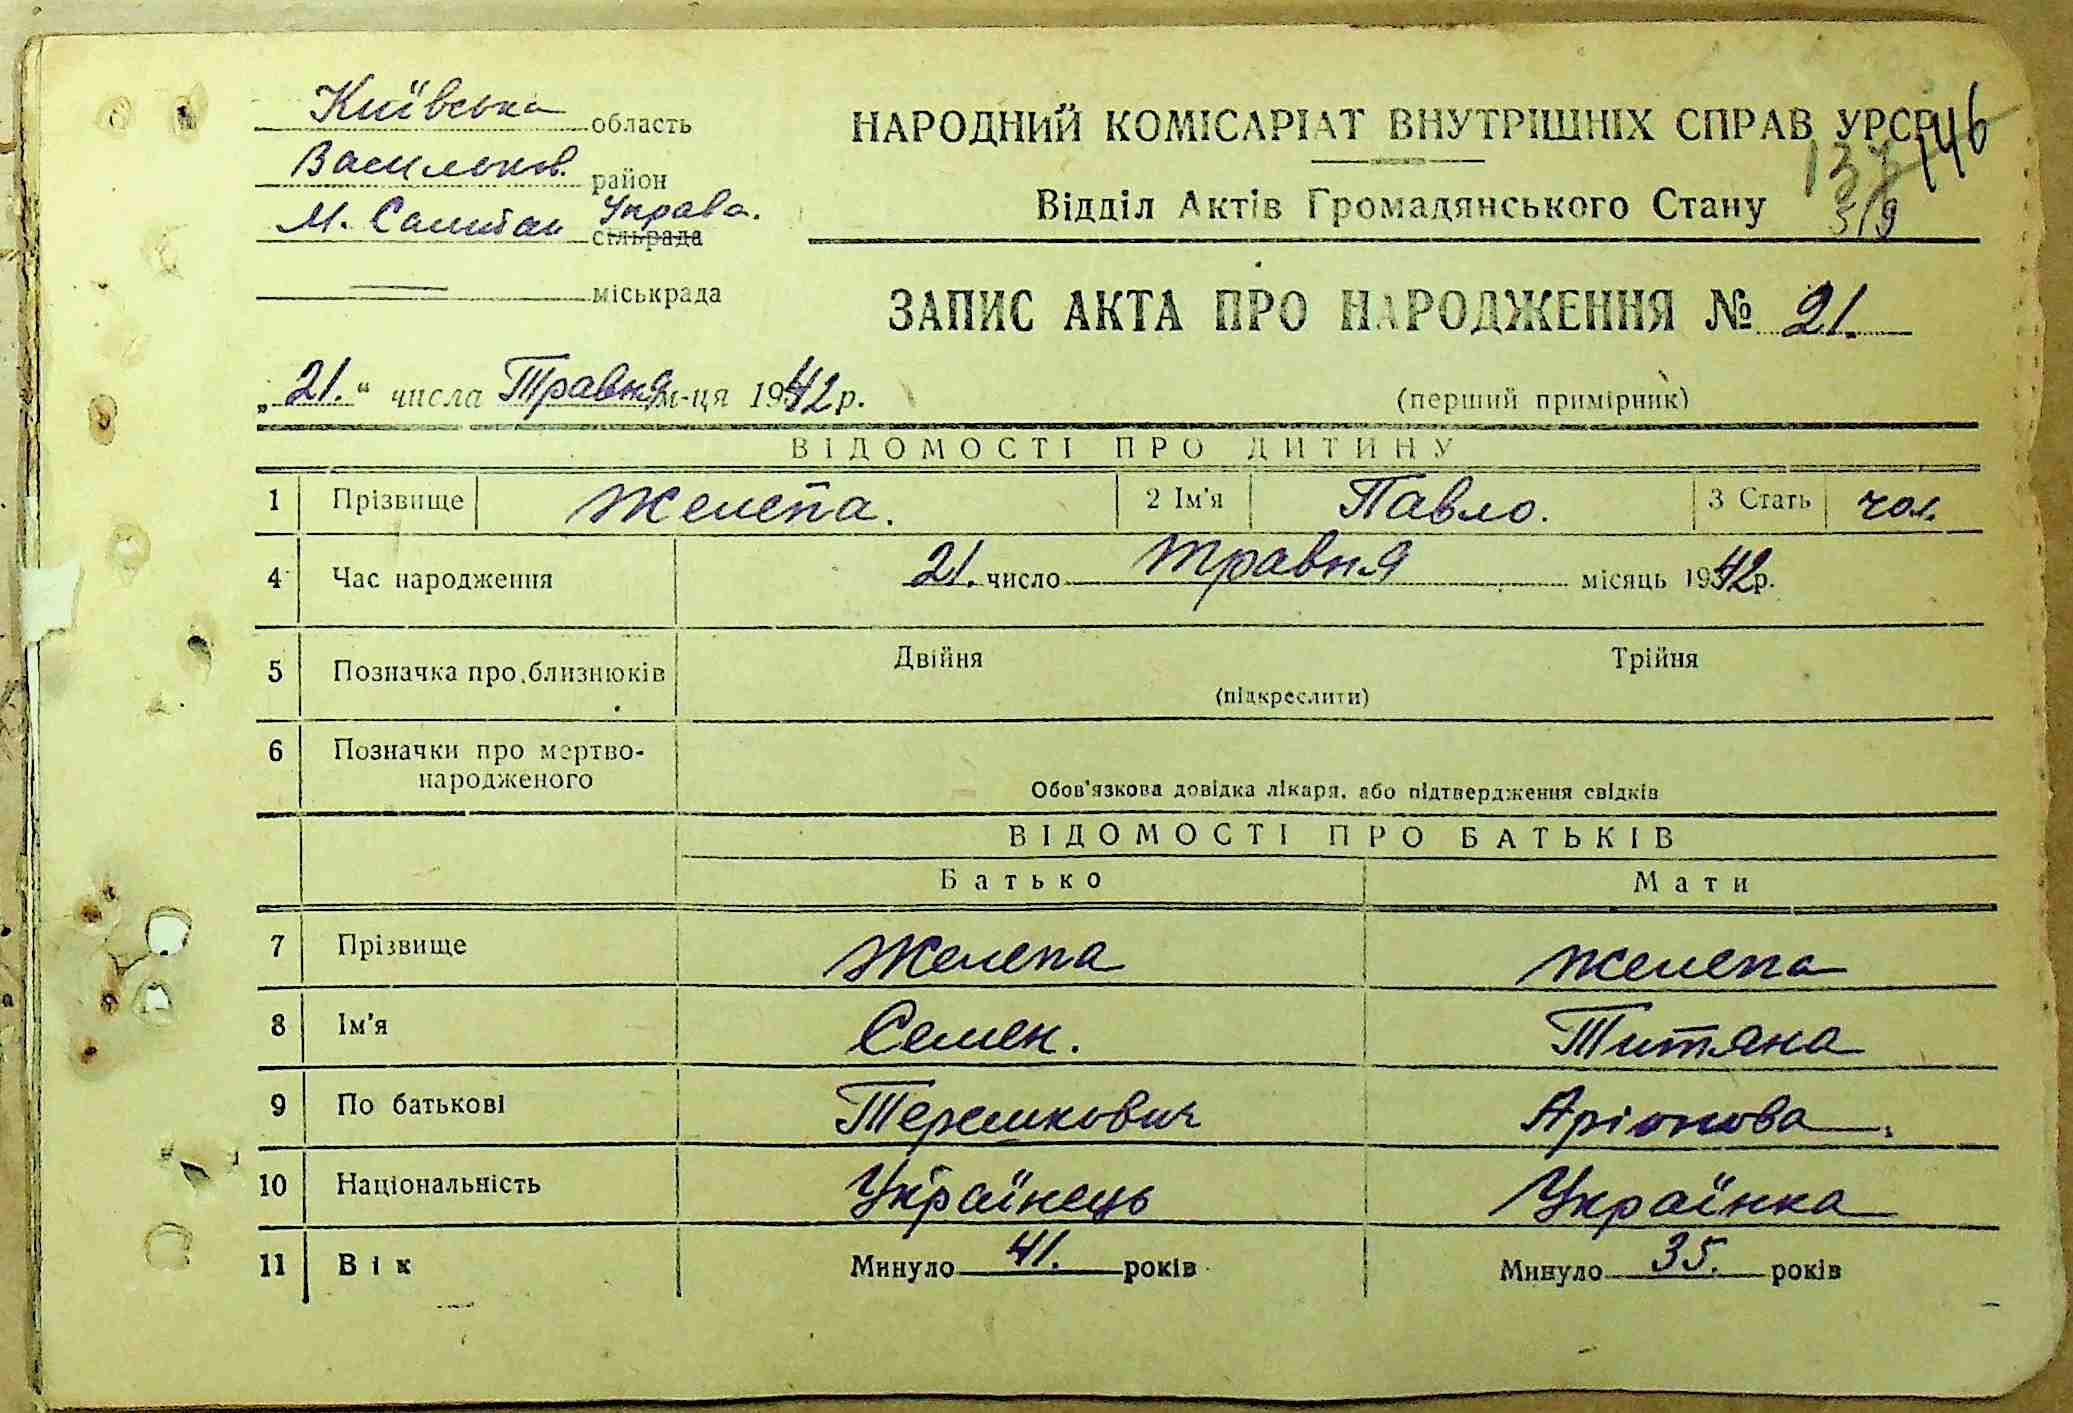 Київська область
НАРОДНИЙ КОМІСАРІАТ ВНУТРІШНІХ СПРАВ УРСР
146
Васильков. район
137
Відділ Актів Громадянського Стану
319
М. Салитан Управа.
сільрада
міськрада
ЗАПИС АКТА ПРО НАРОДЖЕННЯ № 21.
„21.“ числа Травня м-ця 1942 р.
(перший примірник)
ВІДОМОСТІ ПРО ДИТИНУ
1 Прізвище Желепа. 2 Ім'я Павло. 3 Стать чол.
4 Час народження 21. число травня місяць 1942 р.
5 Позначка про близнюків Двійня Трійня
(підкреслити)
6 Позначки про мертво-
народженого
Обов'язкова довідка лікаря, або підтвердження свідків
ВІДОМОСТІ ПРО БАТЬКІВ
Батько Мати
7 Прізвище Желепа Желепа
8 Ім'я Семен. Титяна
9 По батькові Терешкович
10 Національність Українець Українка
11 Вік Минуло 41. років Минуло 35. років